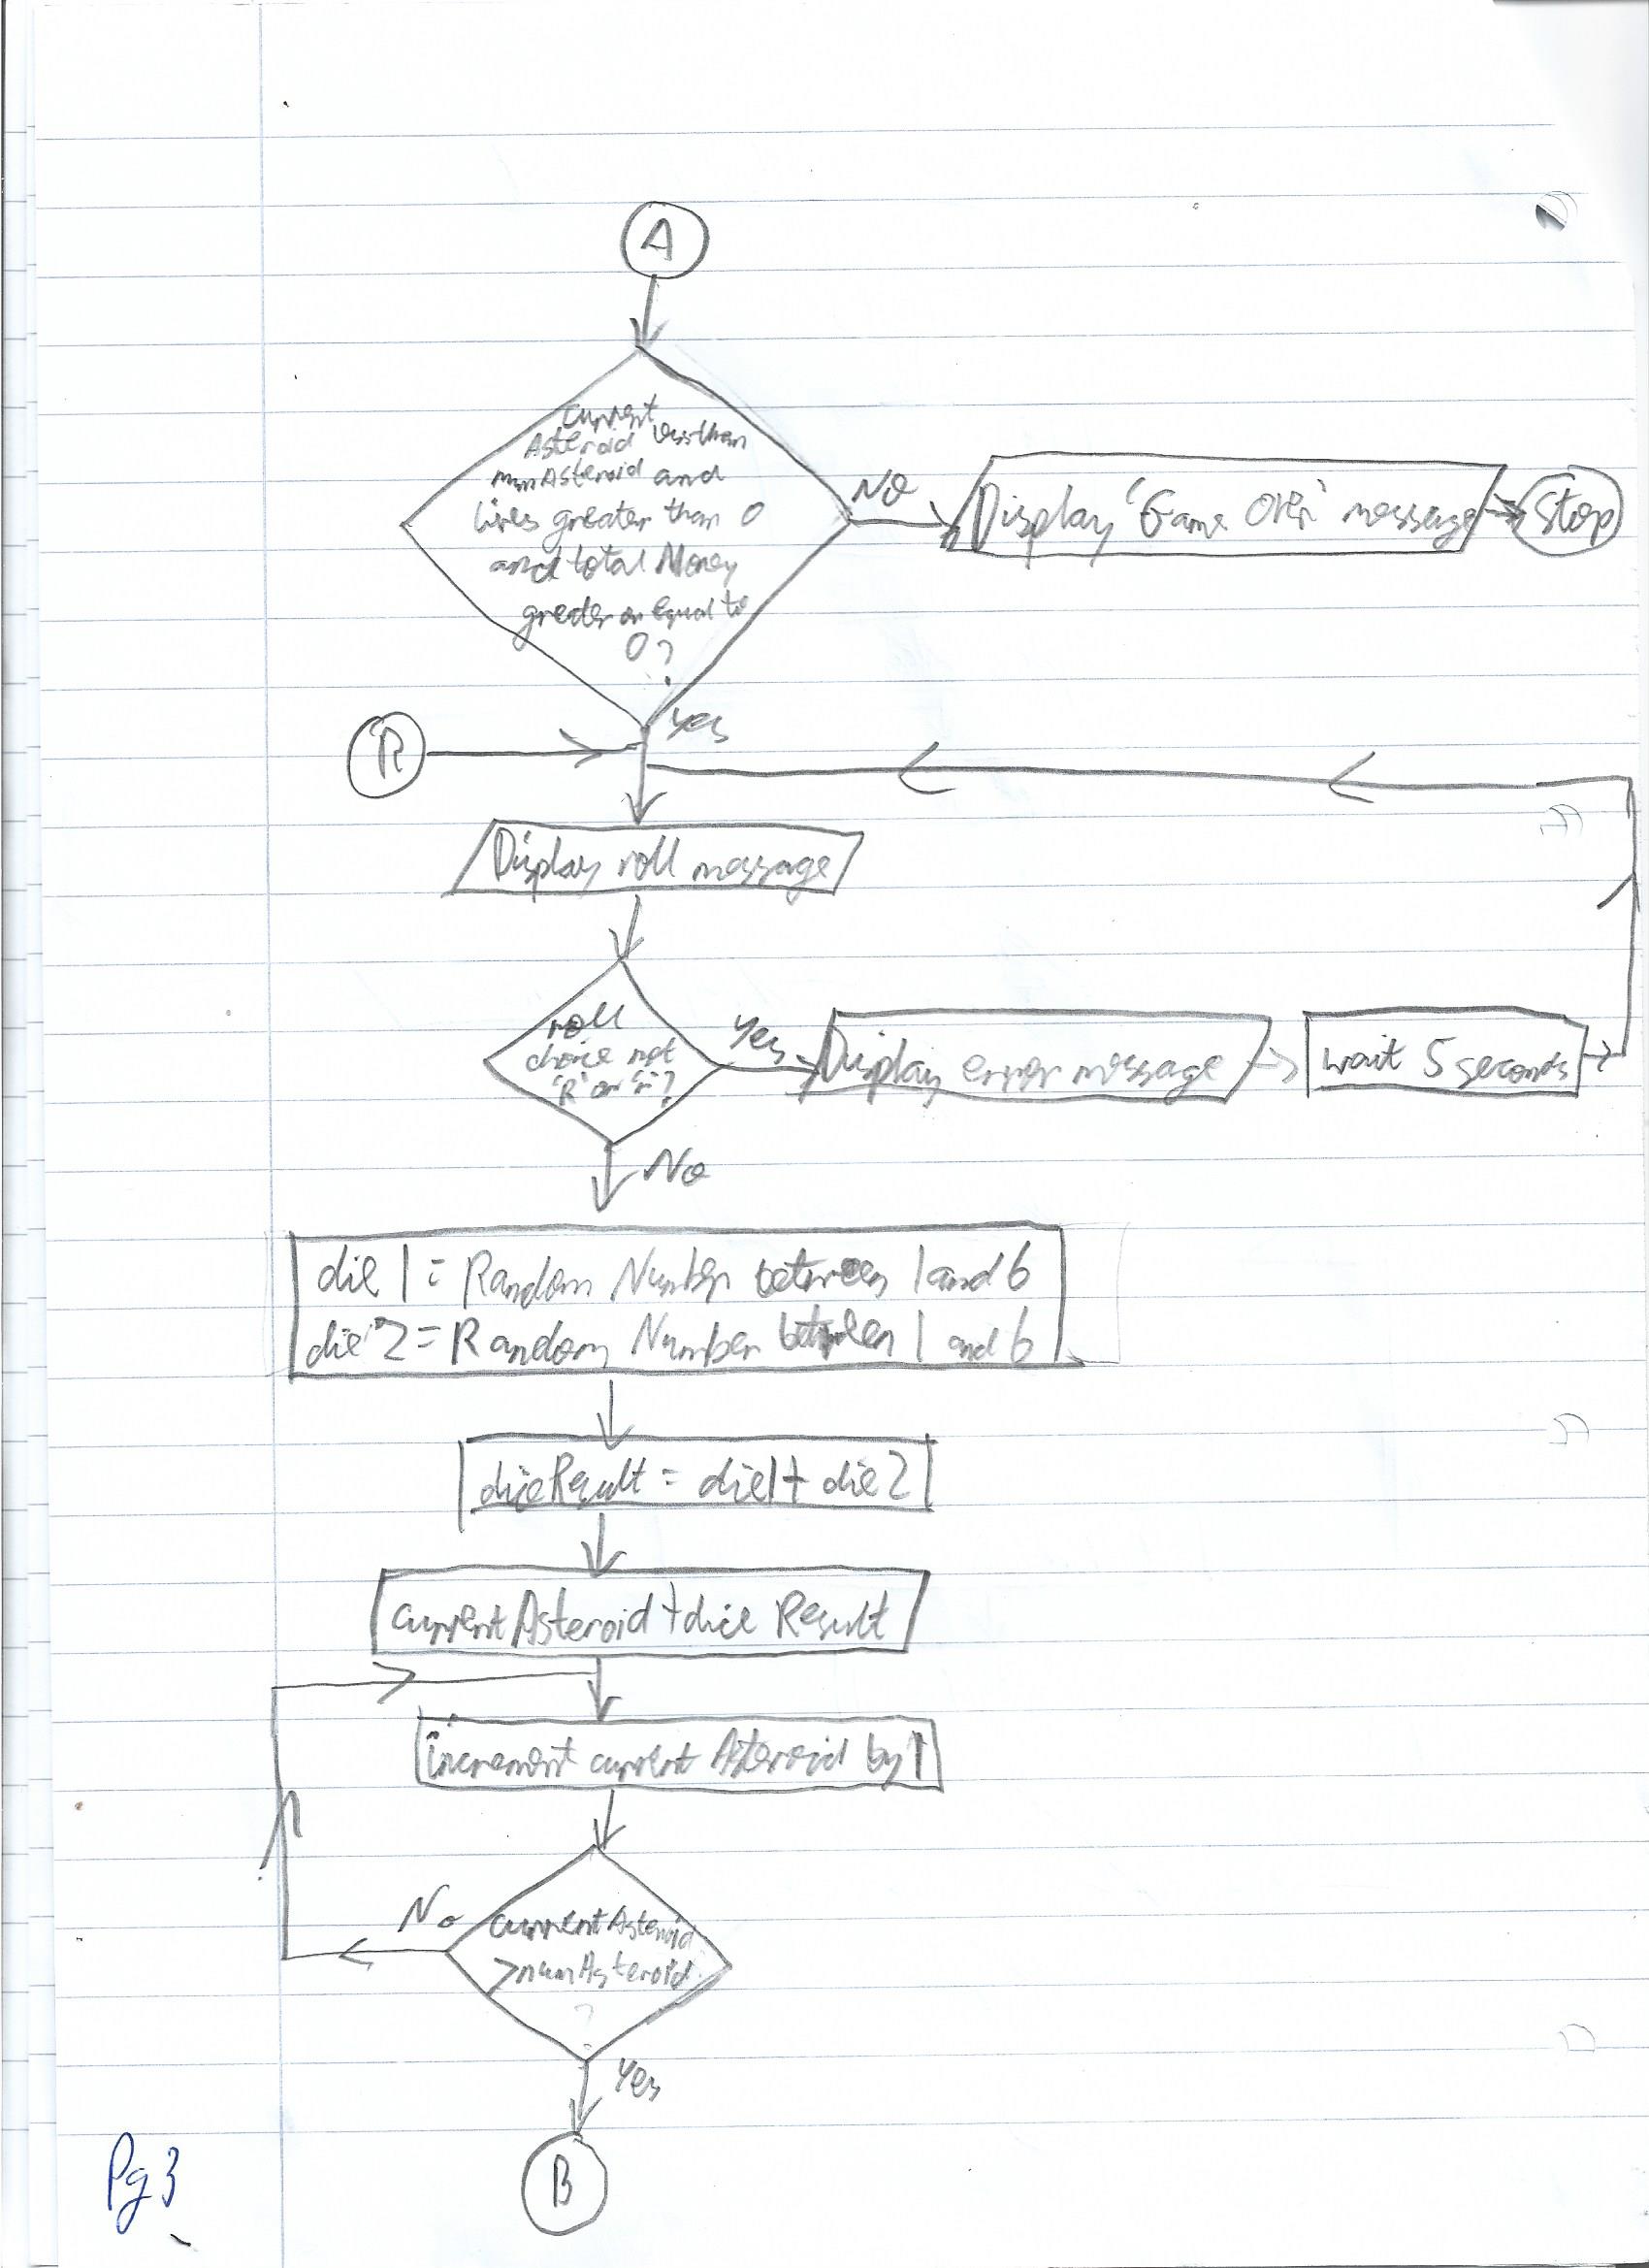 A
current
Asteroid less than
numAsteroid and
lives greater than 0
and total Money
greater or equal to
0?
No
Display 'Game Over' message
Stop
Yes
R
Display roll message
roll
choice not
'R' or 'r'?
Yes
Display error message
wait 5 seconds
No
die 1 = Random Number between 1 and 6
die 2 = Random Number between 1 and 6
diceResult = die1 + die2
currentAsteroid + dice Result
increment current Asteroid by 1
No
currentAsteroid
>numAsteroid
?
Yes
B
Pg 3